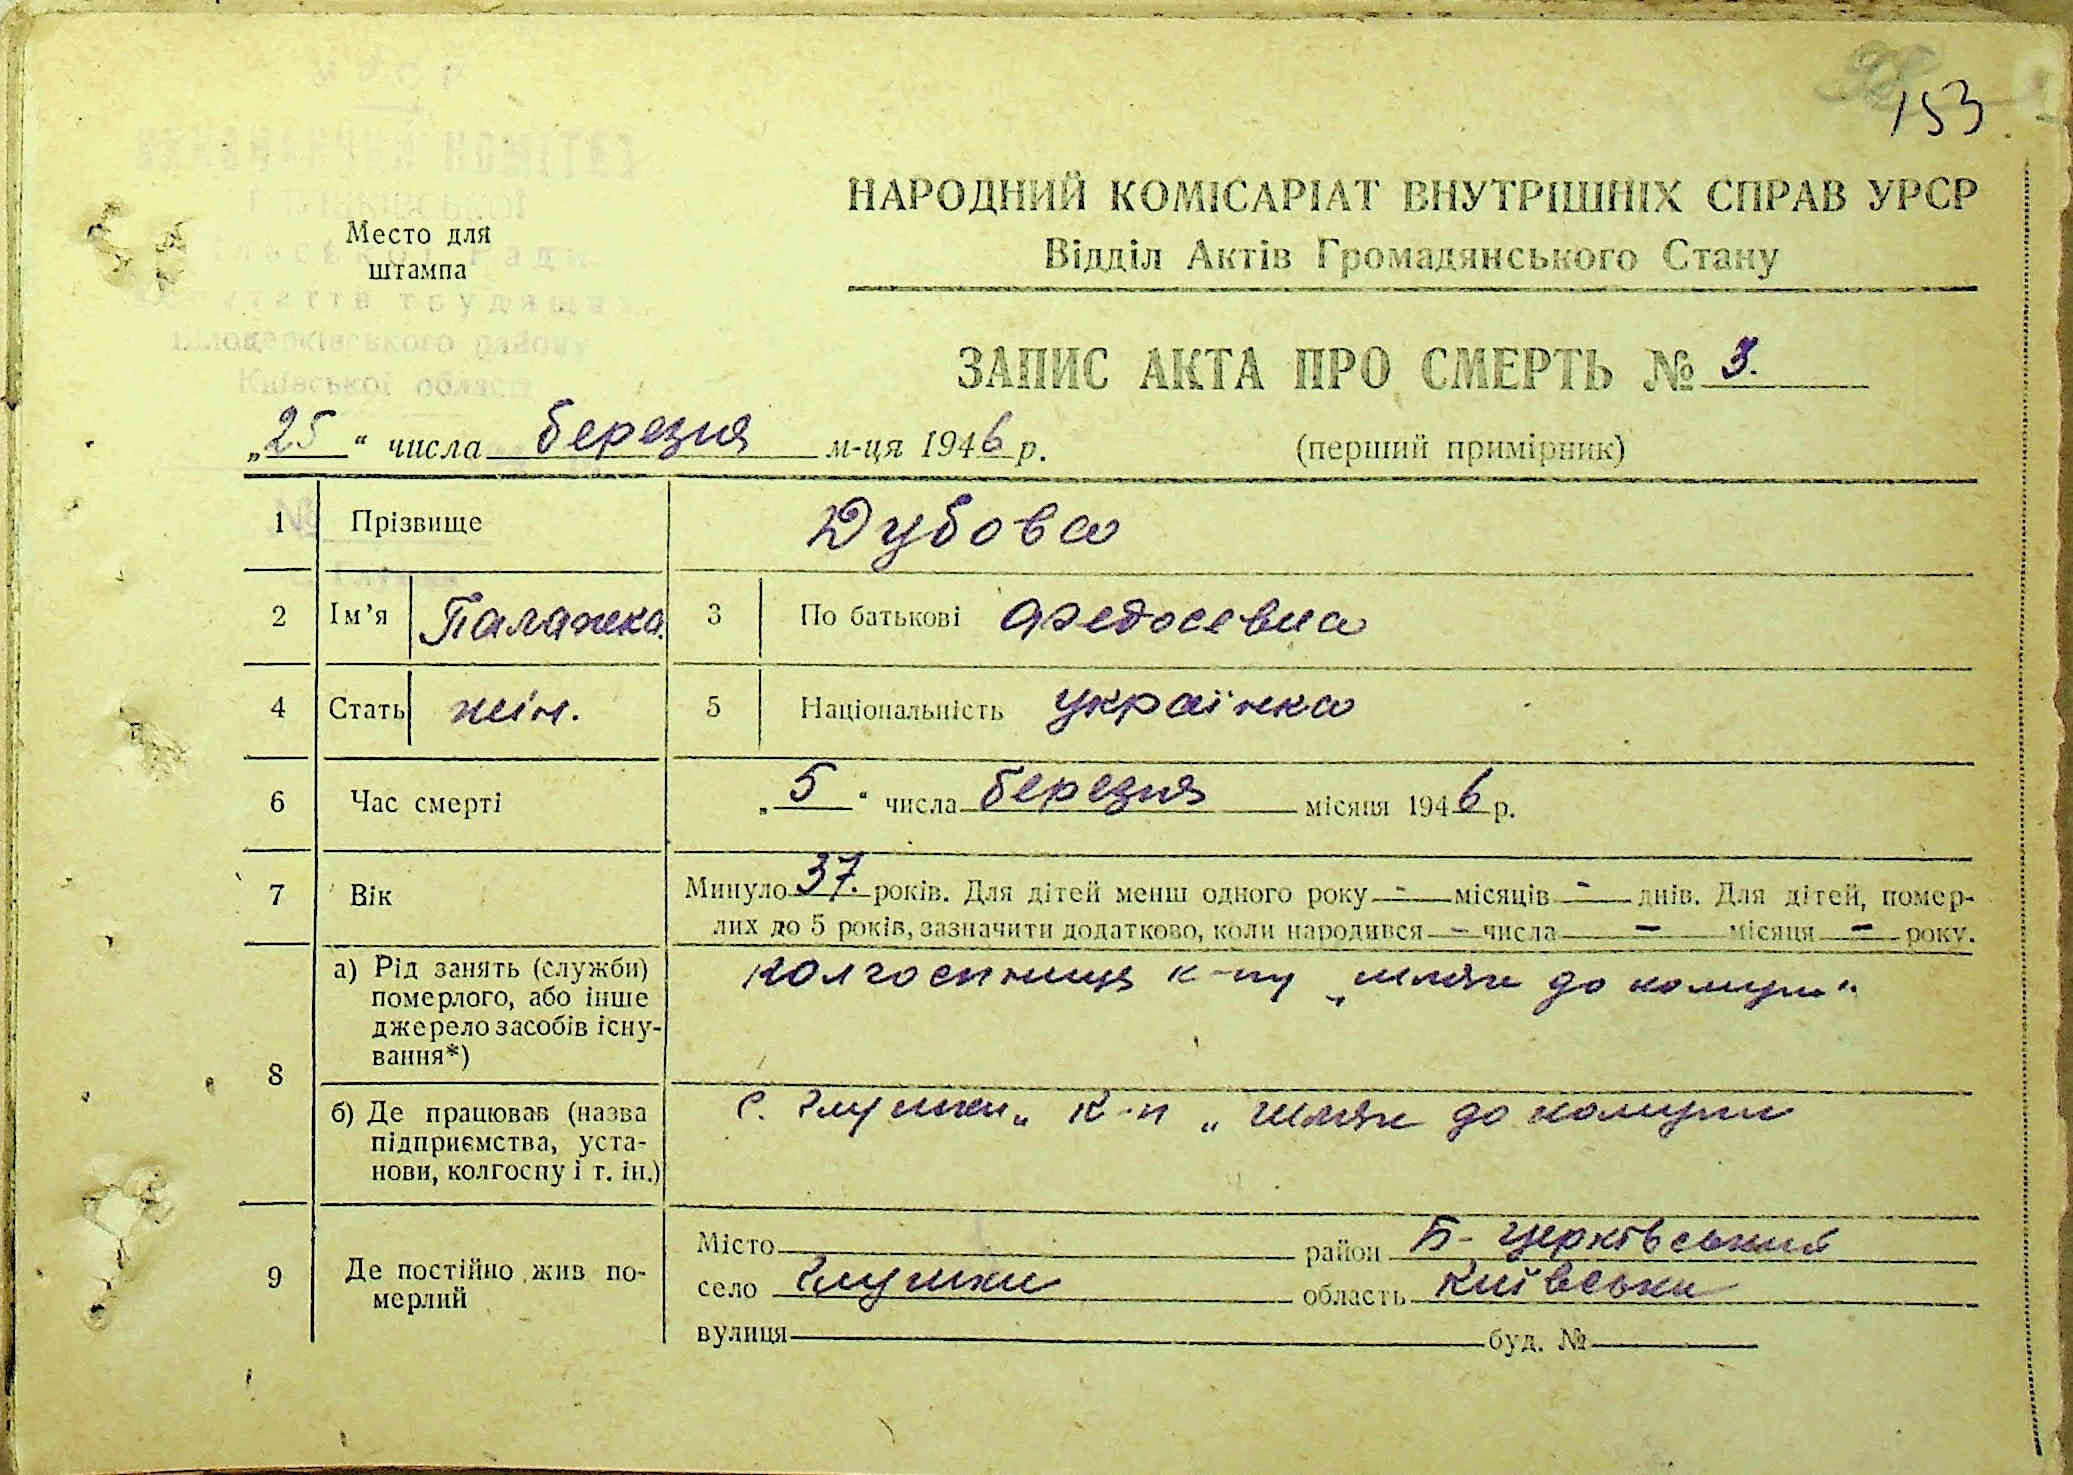 153
НАРОДНИЙ КОМІСАРІАТ ВНУТРІШНІХ СПРАВ УРСР
Відділ Актів Громадянського Стану
Место для
штампа
ЗАПИС АКТА ПРО СМЕРТЬ № 3.
„25“ числа березня м-ця 1946 р. (перший примірник)
1 Прізвище Дубова
2 Ім’я Палажка 3 По батькові Федосевна
4 Стать жін. 5 Національність українка
6 Час смерті „5“ числа березня місяця 1946 р.
7 Вік Минуло 37. років. Для дітей менш одного року - місяців - днів. Для дітей, помер-
лих до 5 років, зазначити додатково, коли народився - числа - місяця - року.
8 а) Рід занять (служби) колгоспниця к-пу „шлях до комуни“
померлого, або інше
джерело засобів існу-
вання*)
б) Де працював (назва с. Глушки „ к-п „ шлях до комуни
підприємства, уста-
нови, колгоспу і т. ін.)
9 Де постійно жив по-
мерлий
Місто район Б-церківський
село Глушки область Київська
вулиця буд. №